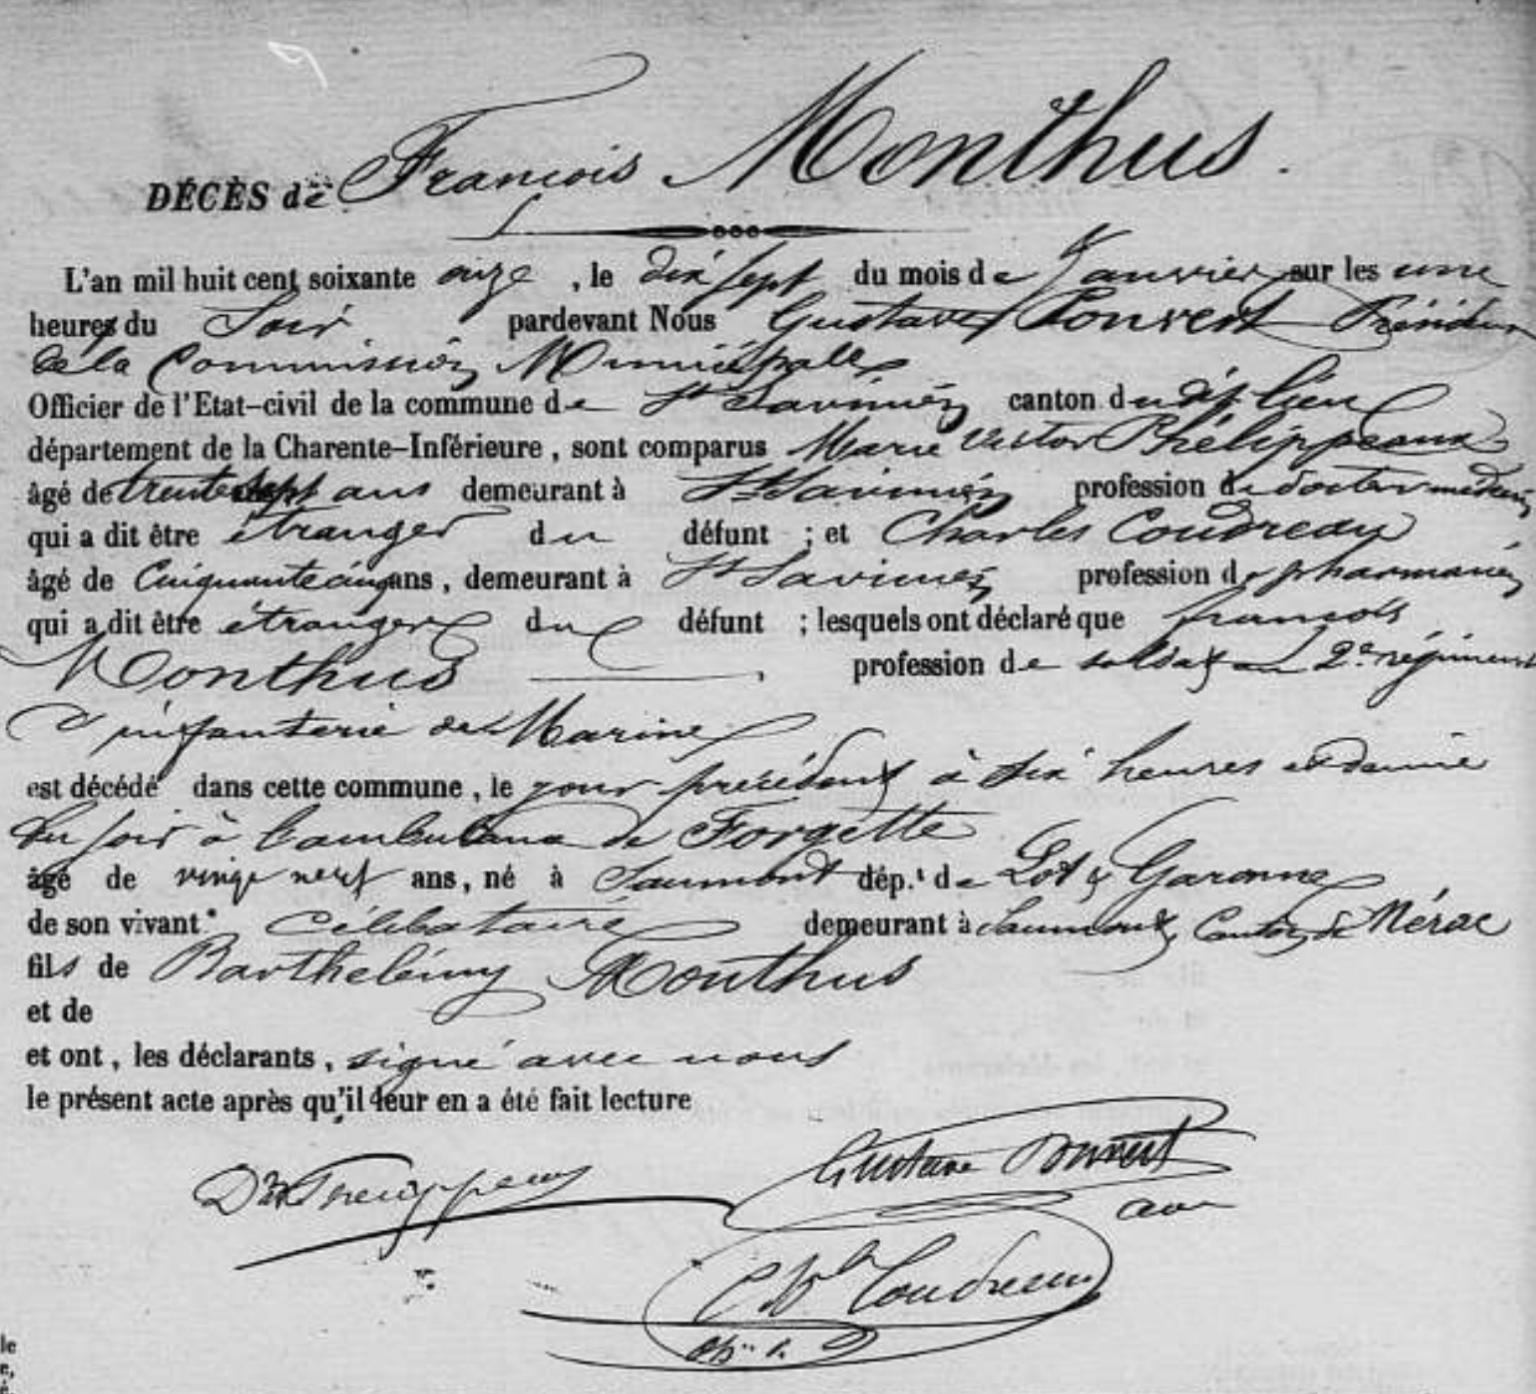 DÉCÈS de François Monthus.
L'an mil huit cent soixante onze, le dix sept du mois de Janvier, sur les une
heures du Soir pardevant Nous Gustave Pouvert Président
de la Commission Municipalle
Officier de l'Etat-civil de la commune de St Savinien canton du dit lieu
département de la Charente-Inférieure, sont comparus Marie Victor Phélippeaux
âgé de trente sept ans demeurant à St Savinien profession de docteur médecin
qui a dit être étranger du défunt ; et Charles Coudreau
âgé de Cinquante cinq ans, demeurant à St Savinien profession de pharmacien
qui a dit être étranger du défunt ; lesquels ont déclaré que françois
Monthus profession de soldat au 2e régiment
d'infanterie de Marine
est décédé dans cette commune, le jour précédent à six heures et demie
du soir à l'ambulance de Forgette
âgé de vingt neuf ans, né à Saumont dép.t de Lot & Garonne
de son vivant célibataire demeurant à Saumont, Canton de Nérac
fils de Barthelémy Monthus
et de
et ont, les déclarants, signé avec nous
le présent acte après qu'il leur en a été fait lecture
Gustave Pouvert
Dr Phelippeaux
Ch Coudreau
le
e,
é.